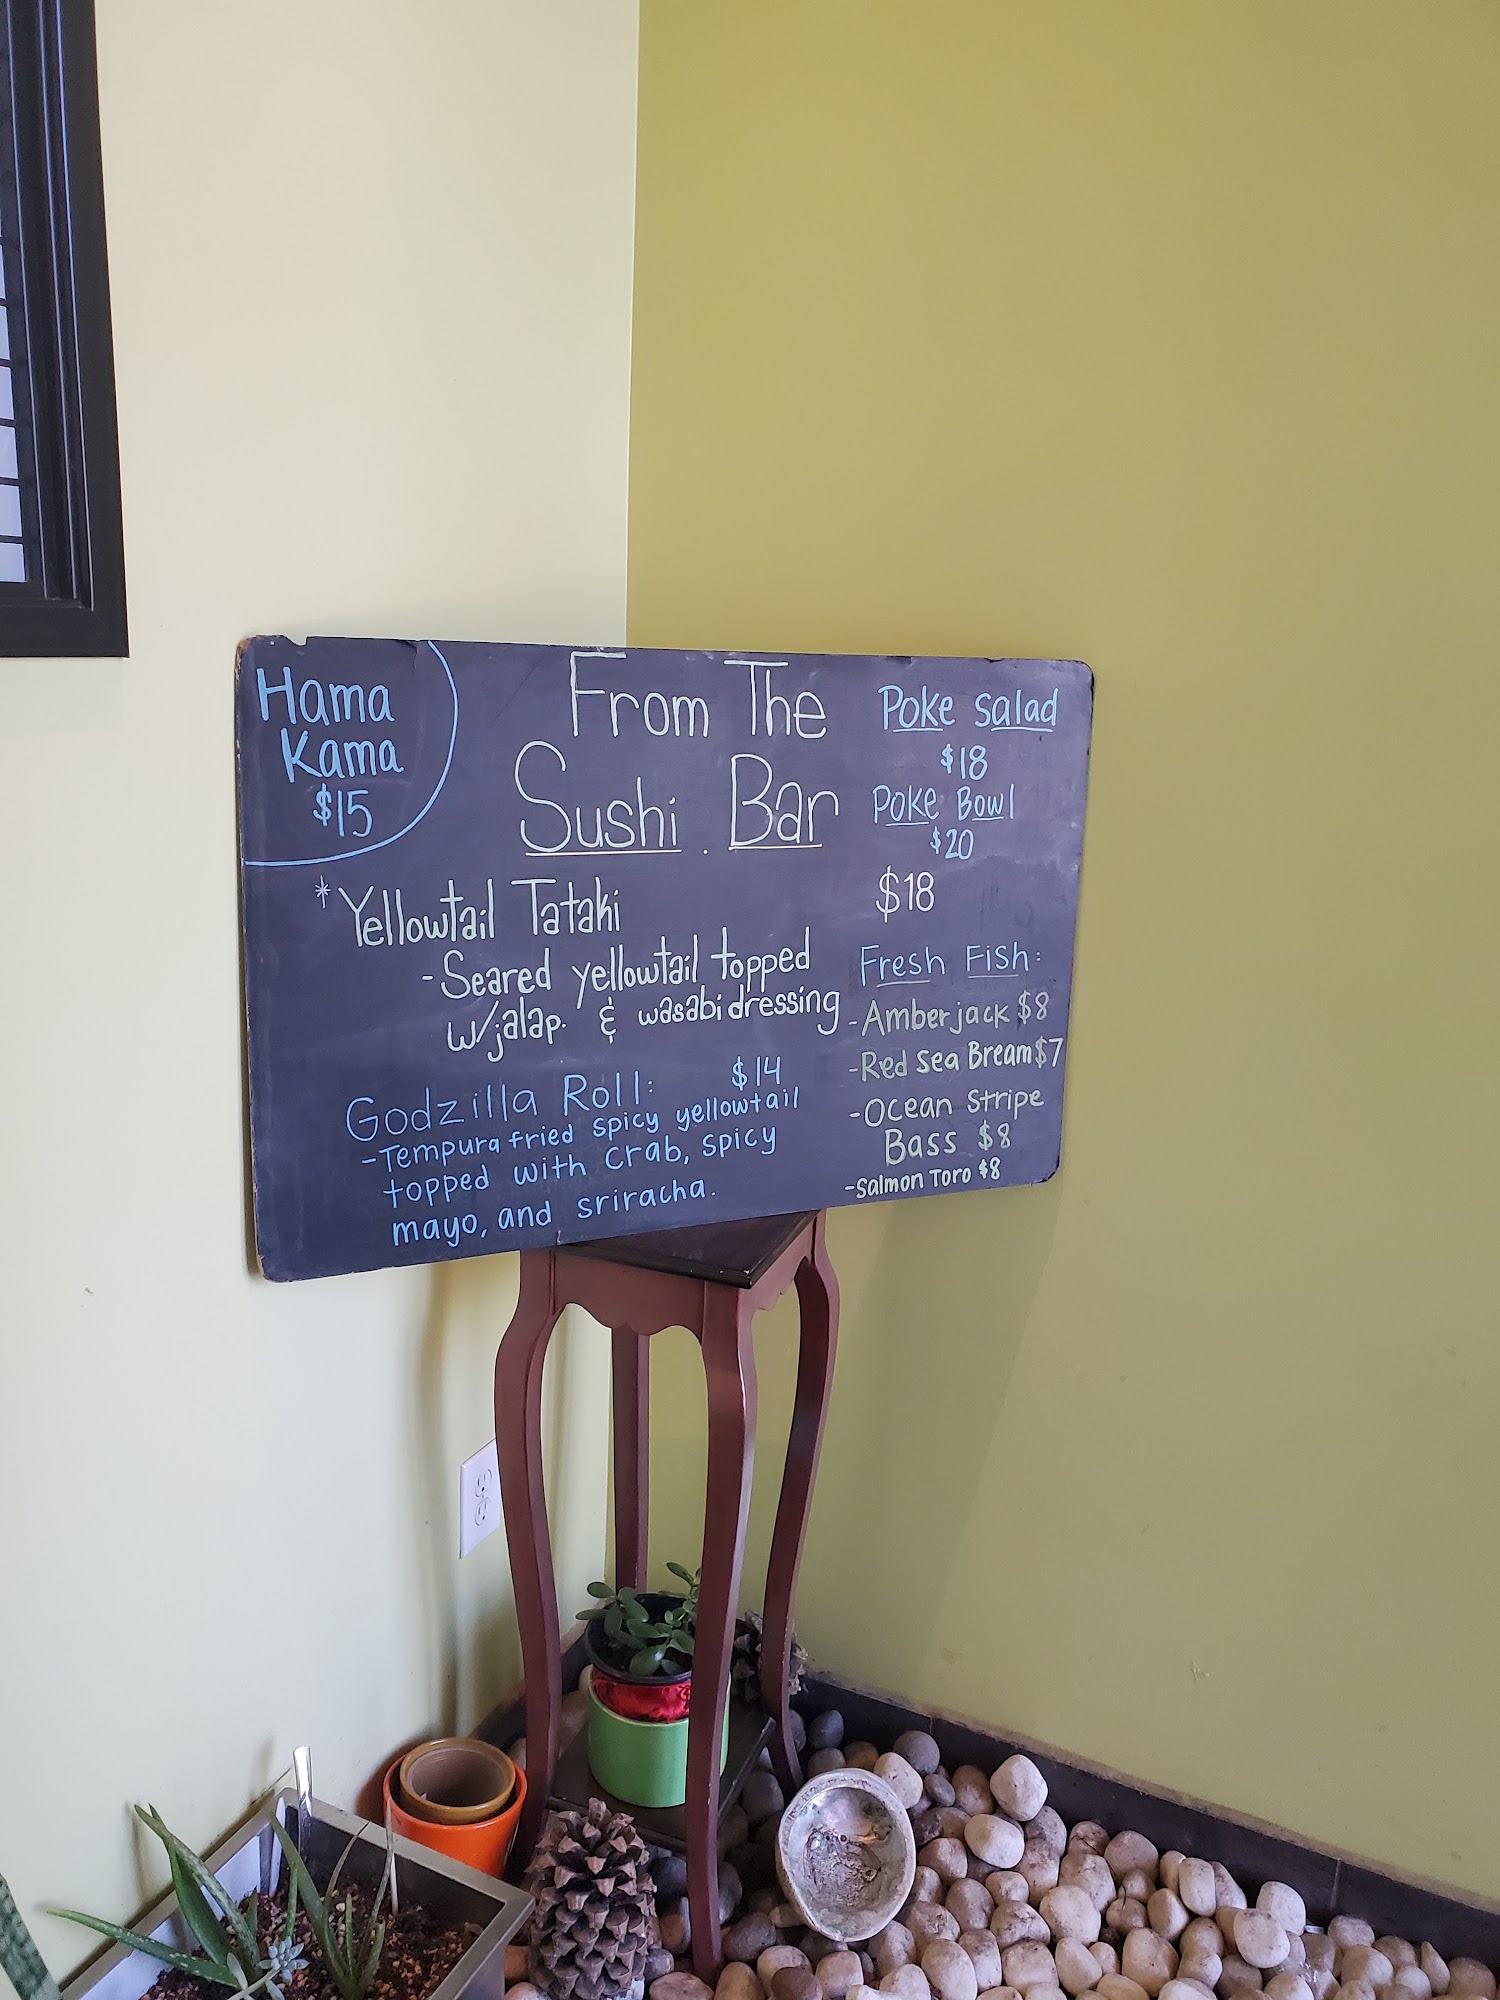 Hama
Kama
$15
From The
Sushi Bar
Poke Salad
$18
Poke Bowl
$20
*Yellowtail Tataki $18
-Seared yellowtail topped
w/jalap. & wasabi dressing
Godzilla Roll: $14
-Tempura fried spicy yellowtail
topped with crab, spicy
mayo, and sriracha.
Fresh Fish:
-Amberjack $8
-Red Sea Bream $7
-Ocean Stripe
Bass $8
-Salmon Toro $8